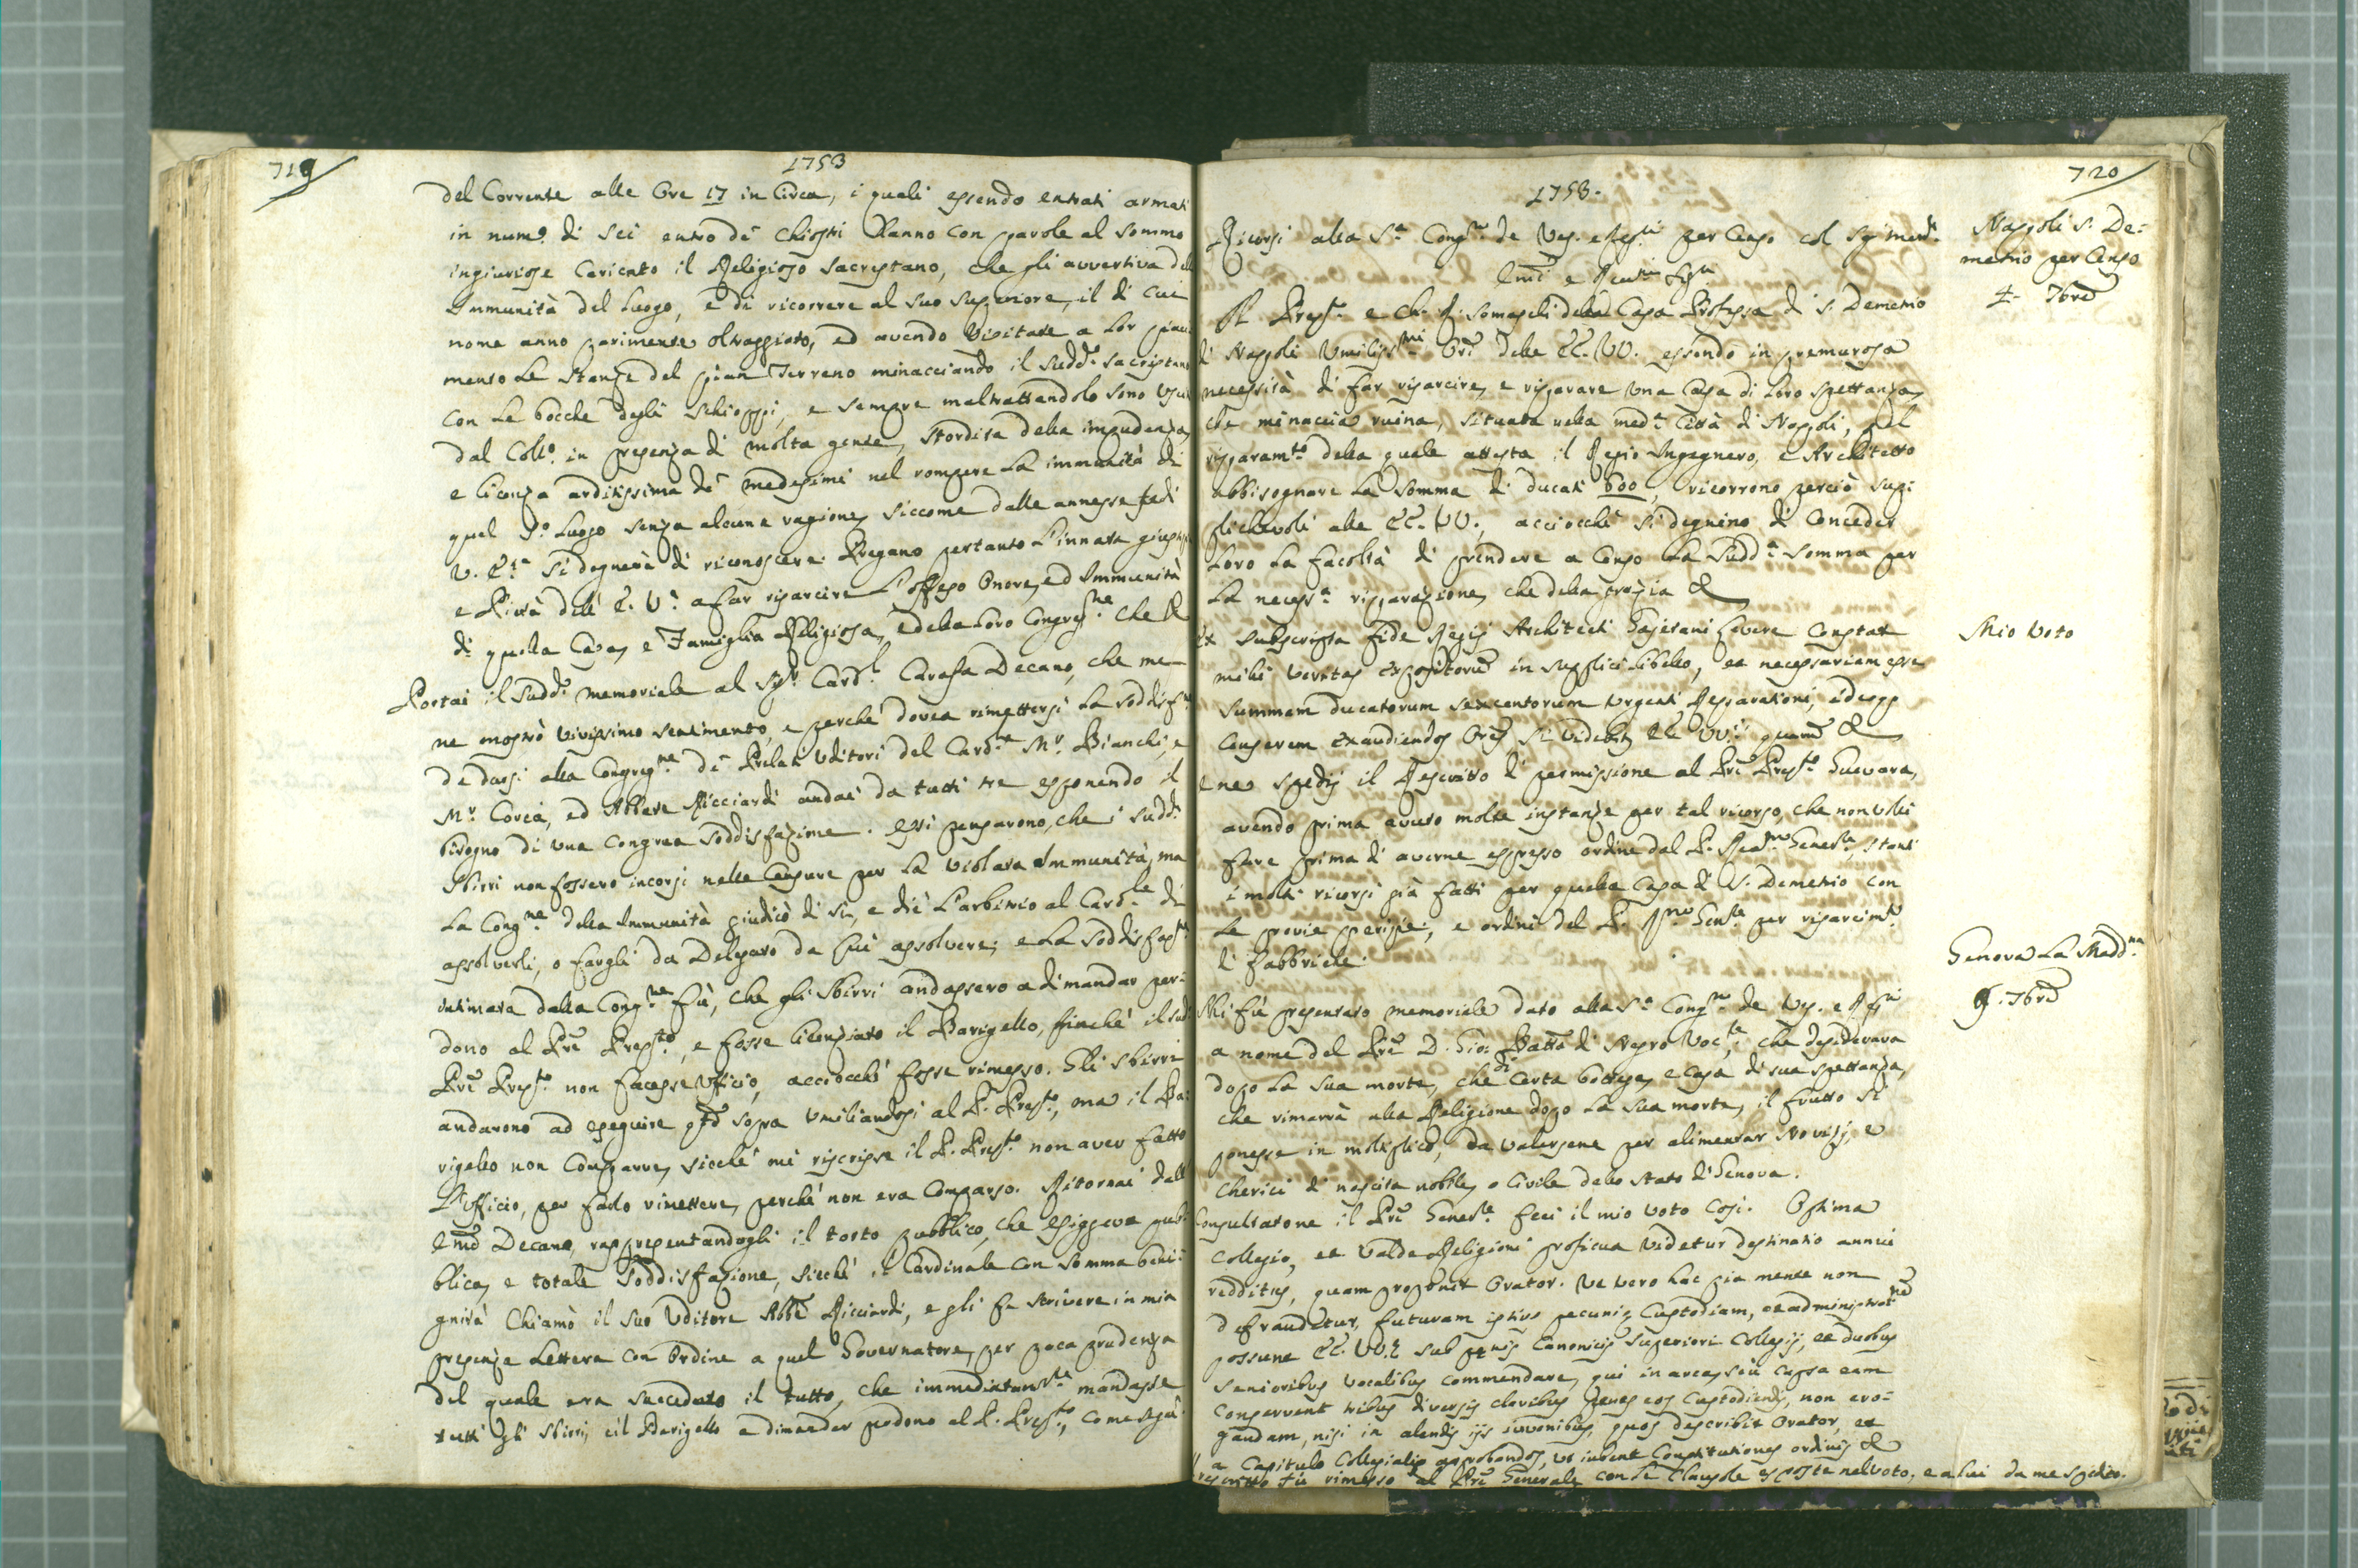 719
1753
del Corrente alle Ore 17 in Circa, i quali essendo entrati armati
in num.o di Sei entro de' Chiostri Hanno con parole al sommo
ingiuriose Caricato il Religioso Sacrestano, che gli avvertiva dell
Immunità del Luogo, e di ricorrere al suo Superiore, il di cui
nome anno parimente oltraggiato, ed avendo Visitate a lor piaci
mento le Stanze del pian Terreno minacciando il Sudd.o Sacristano
con le bocche degli Schioppi, e sempre maltrattandolo sono Usciti
dal Coll.o in presenza di molta gente, Stordita della impudenza,
e licenza arditissima de' medesimi nel rompere la immunità di
quel S.o Luogo senza alcune ragione, siccome dalle annesse fedi
V. E.za Si degnerà di riconoscere. Pregano pertanto l'innata giustizia
e Pietà dell' E. V.a a far risarcire l'offeso Onore, ed Immunità
di questa Casa, e Famiglia Religiosa, e della loro Congreg.ne Che &
Portai il Sudd.o memoriale al Sig.r Card.l Carafa Decano, che me
ne mostrò vivissimo sentimento, e perché dovea rimettersi la Soddisf.ne
de darsi alla Congreg.ne de' Prelati Uditori del Card.le M.r Bianchi, e
M.r Coreà, ed Abbate Ricciardi andai da tutti tre esponendo il
bisogno di una Congrua Soddisfazione. Essi pensarono, che i Sudd.i
Sbirri non fossero incorsi nelle Censure per la Violata Immunità, ma
la Cong.ne della Immunità giudicò di sì, e diè l'arbitrio al Card.le di
assolverli, o fargli da Delegato da lui assolvere; e la Soddisfaz.ne
intimata dalla Cong.ne fù, che gli Sbirri andassero a dimandar per:
dono al Prē Prep.to, e fosse licenziato il Barigello, finché il sud.o
Prē Prep.to non facesse Officio, acciocchè fosse rimesso. Gli Sbirri
andarono ad eseguire qtō sopra Umiliandosi al P. Prep.to, ma il Ba:
rigello non Comparve, sicché mi riscrisse il P. Prep.to non aver fatto
l'Officio, per farlo rimettere, perché non era Comparso. Ritornai dall
Emō Decano, rappresentandogli il torto pubblico, che esiggeva pub:
blica, e totale Soddisfazione, sicché il Cardinale con somma beni:
gnità Chiamò il suo Uditore Abbē Ricciardi, e gli fe scrivere in mia
presenza Lettera con Ordine a quel Governatore, per poca prudenza
del quale era succeduto il tutto, che immediatam.te mandasse
tutti gli Sbirri, e il Barigello a dimandar perdono al P. Prep.to, come seguì.
720
1753.
Napoli S. De:
metrio per Censo
4. 7brē
Ricorsi alla S.a Cong.ne de Ves. e Reg.ri per Censo col Seg. mem.le
Emī e Revmi Sig.ri
Il Prep.to e Ch. R. Somaschi della Casa Professa di S. Demetrio
di Napoli Umiliss.mi Orī delle EE. VV. essendo in premurosa
necessità di far risarcire, e riparare una Casa di loro spettanza,
che minaccia ruina, situata nella med.a Città di Napoli, pel
riparam.to della quale attesta il Regio Ingegnero, e Architetto
abbisognare la Somma di ducati 600, ricorrono perciò sup:
plichevoli alle EE. VV., acciocchè si degnino di Conceder
loro la facoltà di prendere a Censo la Sudd.a Somma per
la necess.a riparazione, che della grazia &
Mio Voto
Ex subscripta fide Regij Architecti Gajetani Severe Constat
mihi veritas expositorum in supplici libello, et necessariam esse
summam ducatorum sexcentorum urgenti Reparationi, ideoq
Censerem exaudiendos Orēs, si videbitur EE. VV. quarum &
e ne spedij il Rescritto di permissione al Prē Prep.to Guevara,
avendo prima avuto molte instanze per tal ricorso, che non volli
fare prima di averne espresso ordine dal P. Rev.mo Gener.le, stanti
i molti ricorsi già fatti per quella Casa di S. Demetrio con
le previe perizie, e ordini del P. R.mo Gen.le per risarcim.ti
di Fabbriche.
Genova La Madd.na
7brē
Mi fù presentato memoriale dato alla S.a Cong.ne de Ves. e Reg.ri
a nome del Prē D. Gio: Batta di Negro Voc.le, che desiderava
dopo la sua morte, che di Certa bottega, e Casa di sua spettanza,
che rimarrà alla Religione dopo la sua morte, il frutto si
ponesse in moltiplico, da valersene per alimentar Novizj, e
Cherici di nascita nobile, o Civile dello Stato di Genova.
Consultatone il Prē Gener.le feci il mio voto Così. Optima
Collegio, et valde Religioni proficua videtur destinatio annui
redditus, quam proponit Orator. Ut vero hac pia mente non
defraudetur, futuram ipsius pecuniæ Custodiam, et administrat.nē
possunt EE. VV. sub pænis Canonicis Superiori Collegij, et duobus
Senioribus Vocalibus Commendare, qui in arca, seù capsa eam
Conservent tribus diversis clavibus penes eos Custodiendis, non ero:
gandam, nisi in alendis ijs iuvenibus, quos describit Orator, et
a Capitulo Collegialis approbandos, ut iubent Constitutiones ordinis &
rescritto fù rimesso al Prē Generale con le Clausole esposte nel voto, e a lui da me spedito.